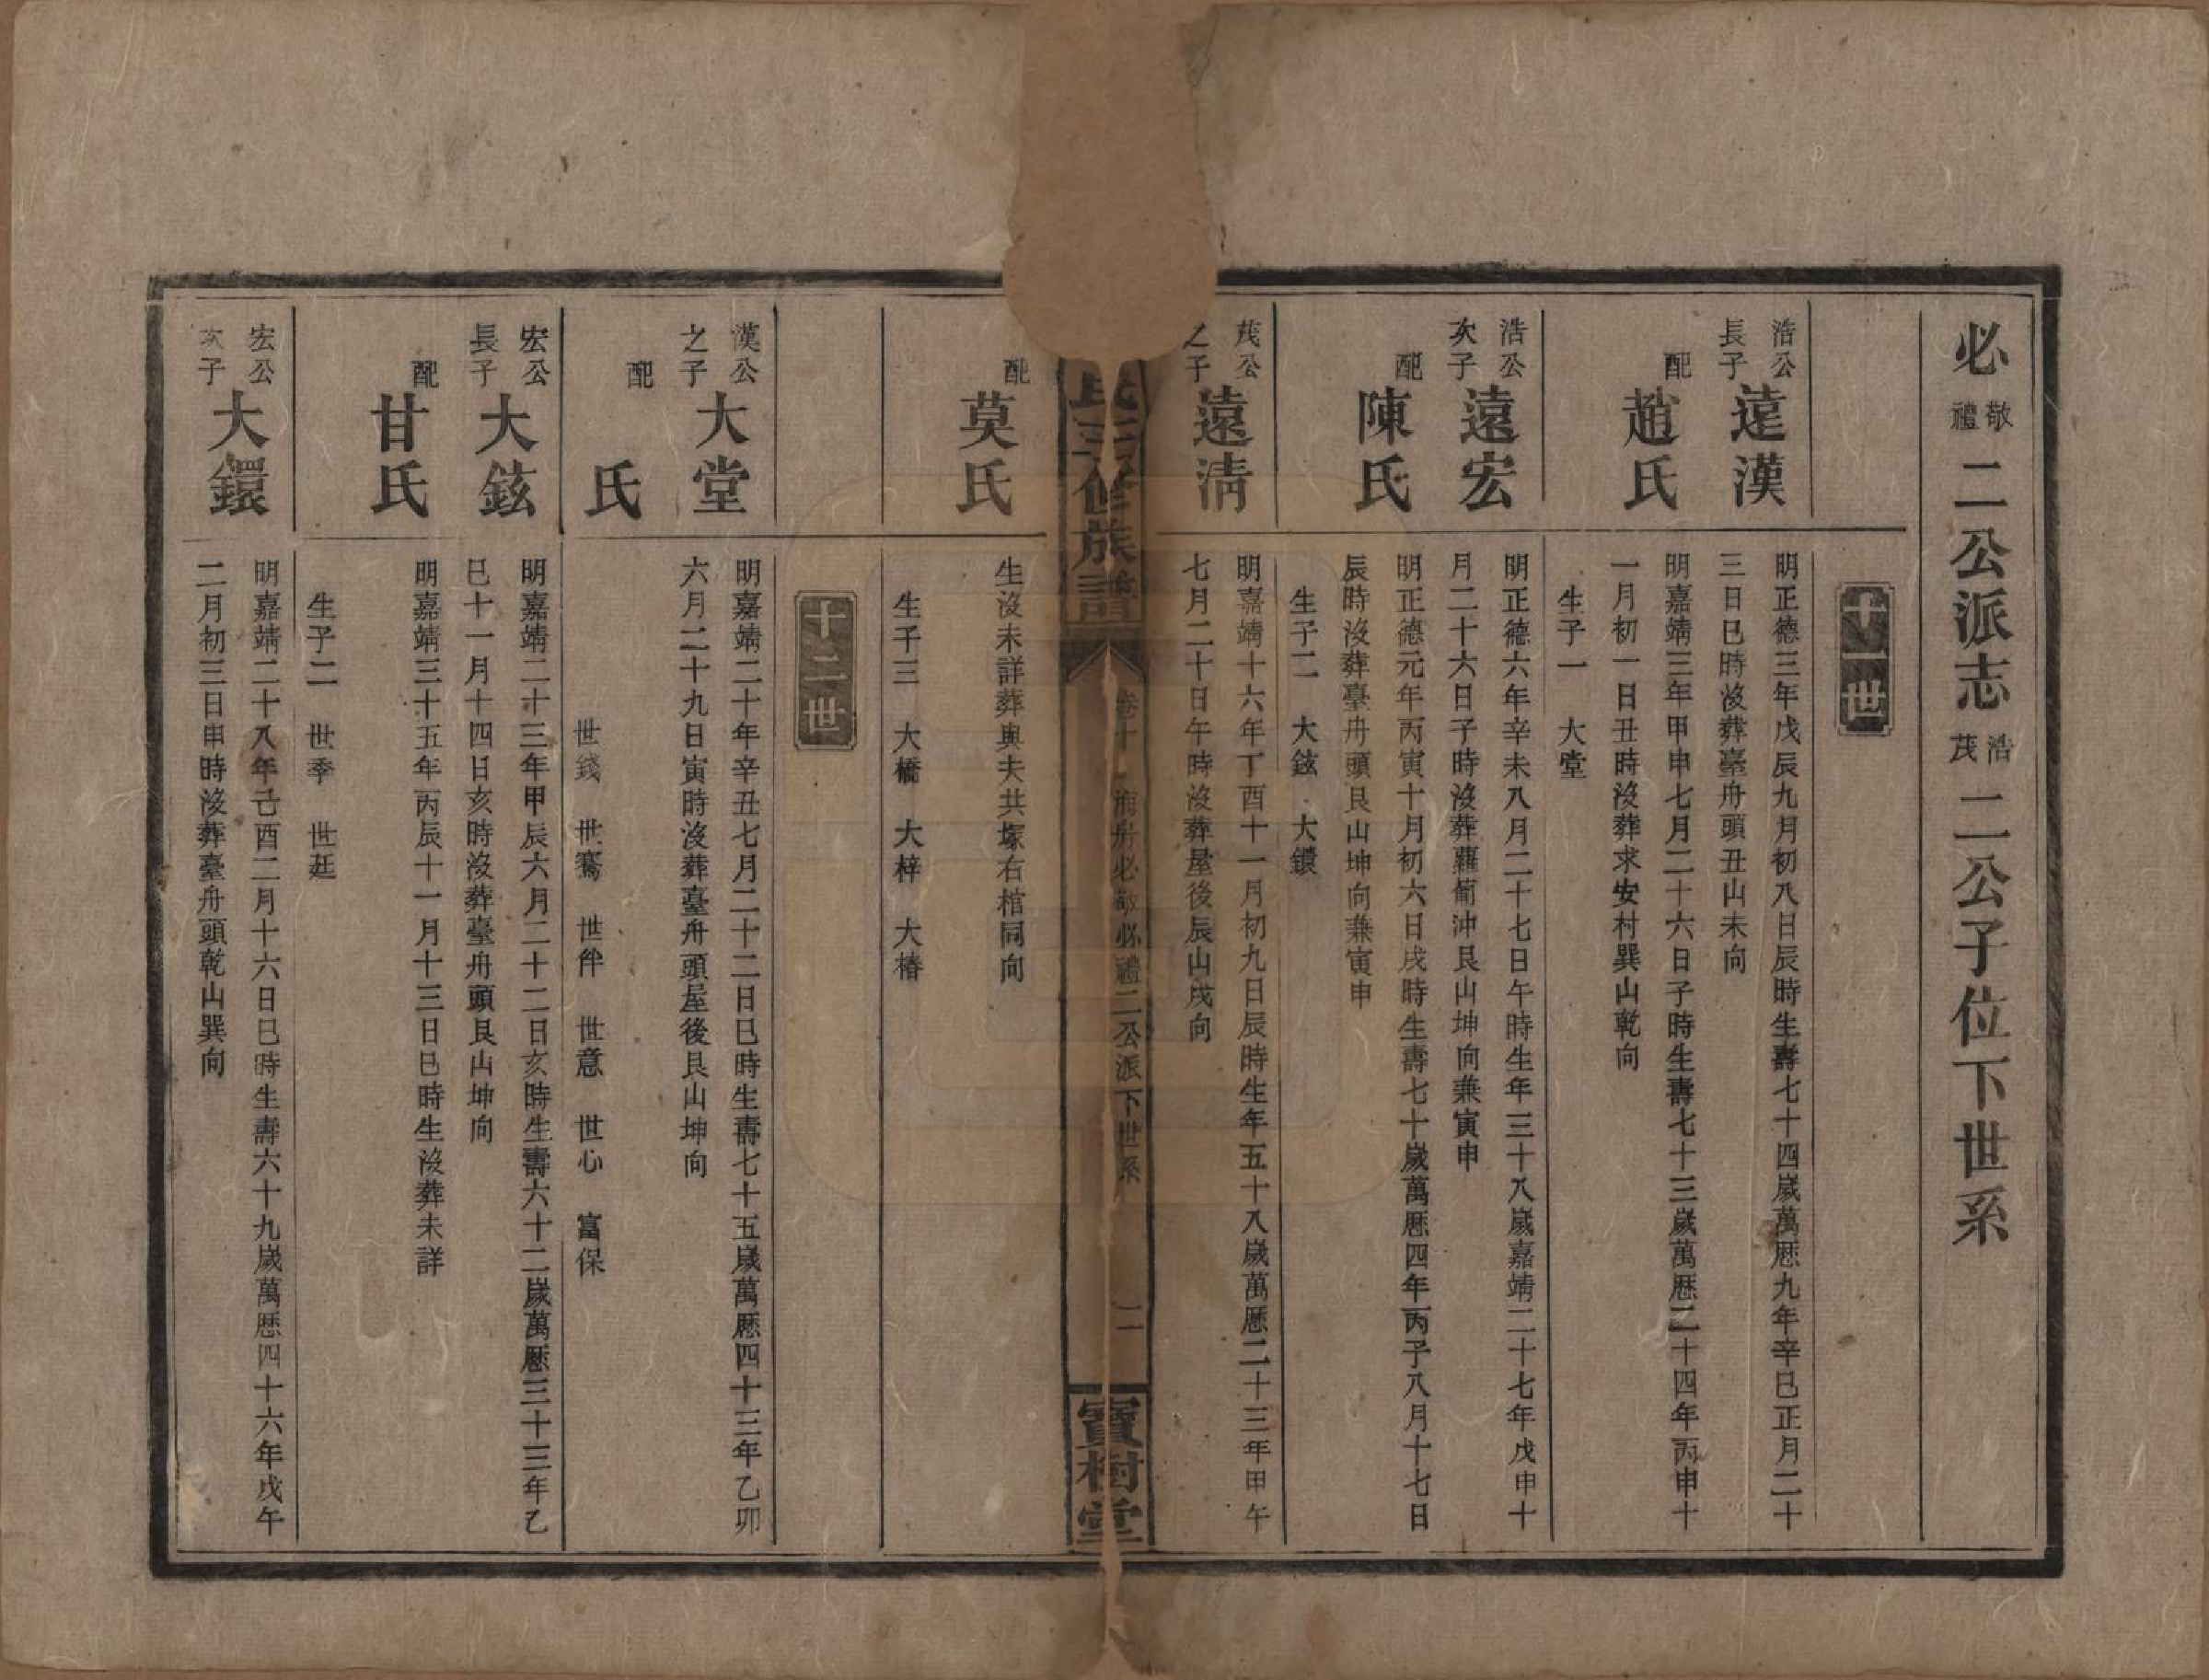 必敬禮二公派志浩茂二公子位下世系
十一世
浩公長子遠漢
明正德三年戊辰九月初八日辰時生壽七十四歲萬歷九年辛巳正月二十
三日巳時沒葬臺舟頭丑山未向
配趙氏
明嘉靖三年甲申七月二十六日子時生壽七十三歲萬歷二十四年丙申十
一月初一日丑時沒葬求安村巽山乾向
生子一　大堂
浩公次子遠宏
明正德六年辛未八月二十七日午時生年三十八歲嘉靖二十七年戊申十
月二十六日子時沒葬蘿蔔沖艮山坤向兼寅申
配陳氏
明正德元年丙寅十月初六日戌時生壽七十歲萬歷四年丙子八月十七日
辰時沒葬臺舟頭艮山坤向兼寅申
生子二　大鉉　大鐶
茂公之子遠清
明嘉靖十六年丁酉十一月初九日辰時生年五十八歲萬歷二十三年甲午
七月二十日午時沒葬屋後辰山戌向
氏三修族譜
卷十　房必敬必禮二公派下世系
二
寶樹堂
配莫氏
生沒未詳葬與夫共塚右棺同向
生子三　大橋　大梓　大椿
十二世
漢公之子大堂
明嘉靖二十年辛丑七月二十二日巳時生壽七十五歲萬歷四十三年乙卯
六月二十九日寅時沒葬臺舟頭屋後艮山坤向
配　氏
世錢　世騫　世伴　世意　世心　富保
宏公長子大鉉
明嘉靖二十三年甲辰六月二十二日亥時生壽六十二歲萬歷三十三年乙
巳十一月十四日亥時沒葬臺舟頭艮山坤向
配甘氏
明嘉靖三十五年丙辰十一月十三日巳時生沒葬未詳
生子二　世季　世廷
宏公次子大鐶
明嘉靖二十八年己酉二月十六日巳時生壽六十九歲萬歷四十六年戊午
二月初三日申時沒葬臺舟頭乾山巽向